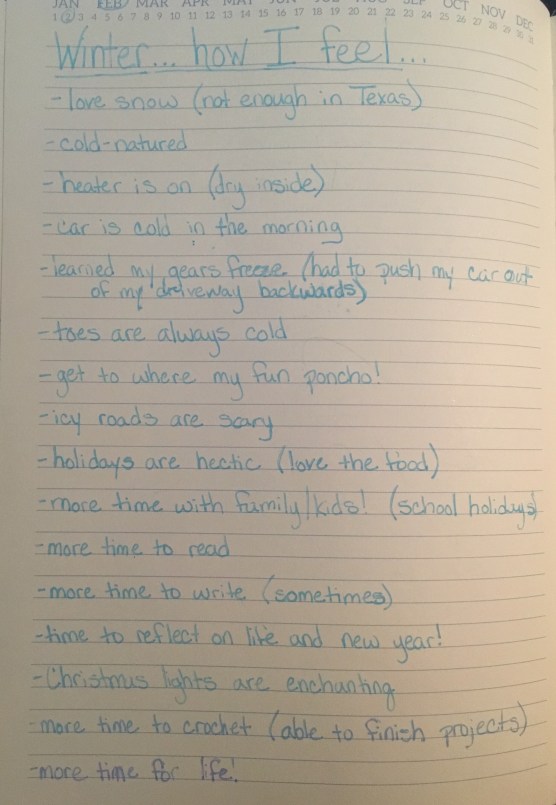 JAN FEB MAR APR MAY OCT NOV DEC
1 2 3 4 5 6 7 8 9 10 11 12 13 14 15 16 17 18 19 20 21 22 23 24 25 26 27 28 29 30 31
Winter... how I feel...
-love snow (not enough in Texas)
-cold-natured
-heater is on (dry inside)
-car is cold in the morning
-learned my gears freeze (had to push my car out
of my driveway backwards)
-toes are always cold
-get to where my fun poncho!
-icy roads are scary
-holidays are hectic (love the food)
-more time with family/kids! (school holidays)
-more time to read
-more time to write (sometimes)
-time to reflect on life and new year!
-Christmas lights are enchanting
-more time to crochet (able to finish projects)
-more time for life!